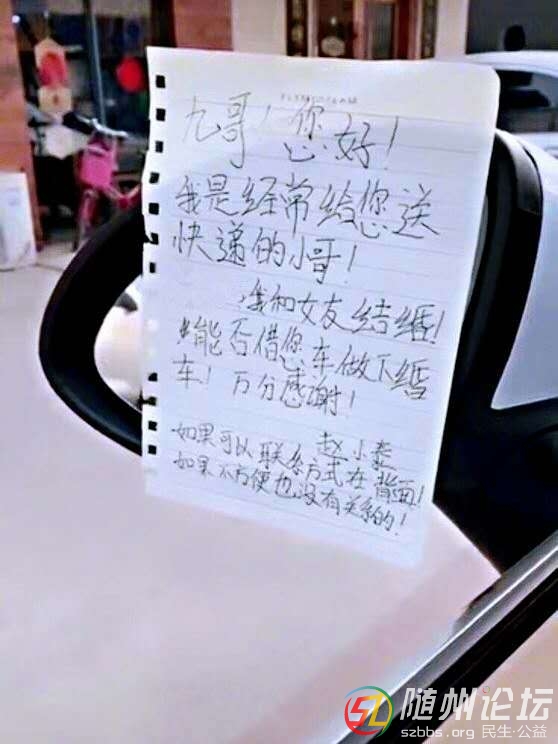 九哥！您好！
我是经常给您送
快递的小哥！
我和女友结婚！
能否借您车做下婚
车！万分感谢！
赵小泰
如果可以联系方式在背面！
如果不方便也没有关系的！
随州论坛
szbbs.org 民生·公益